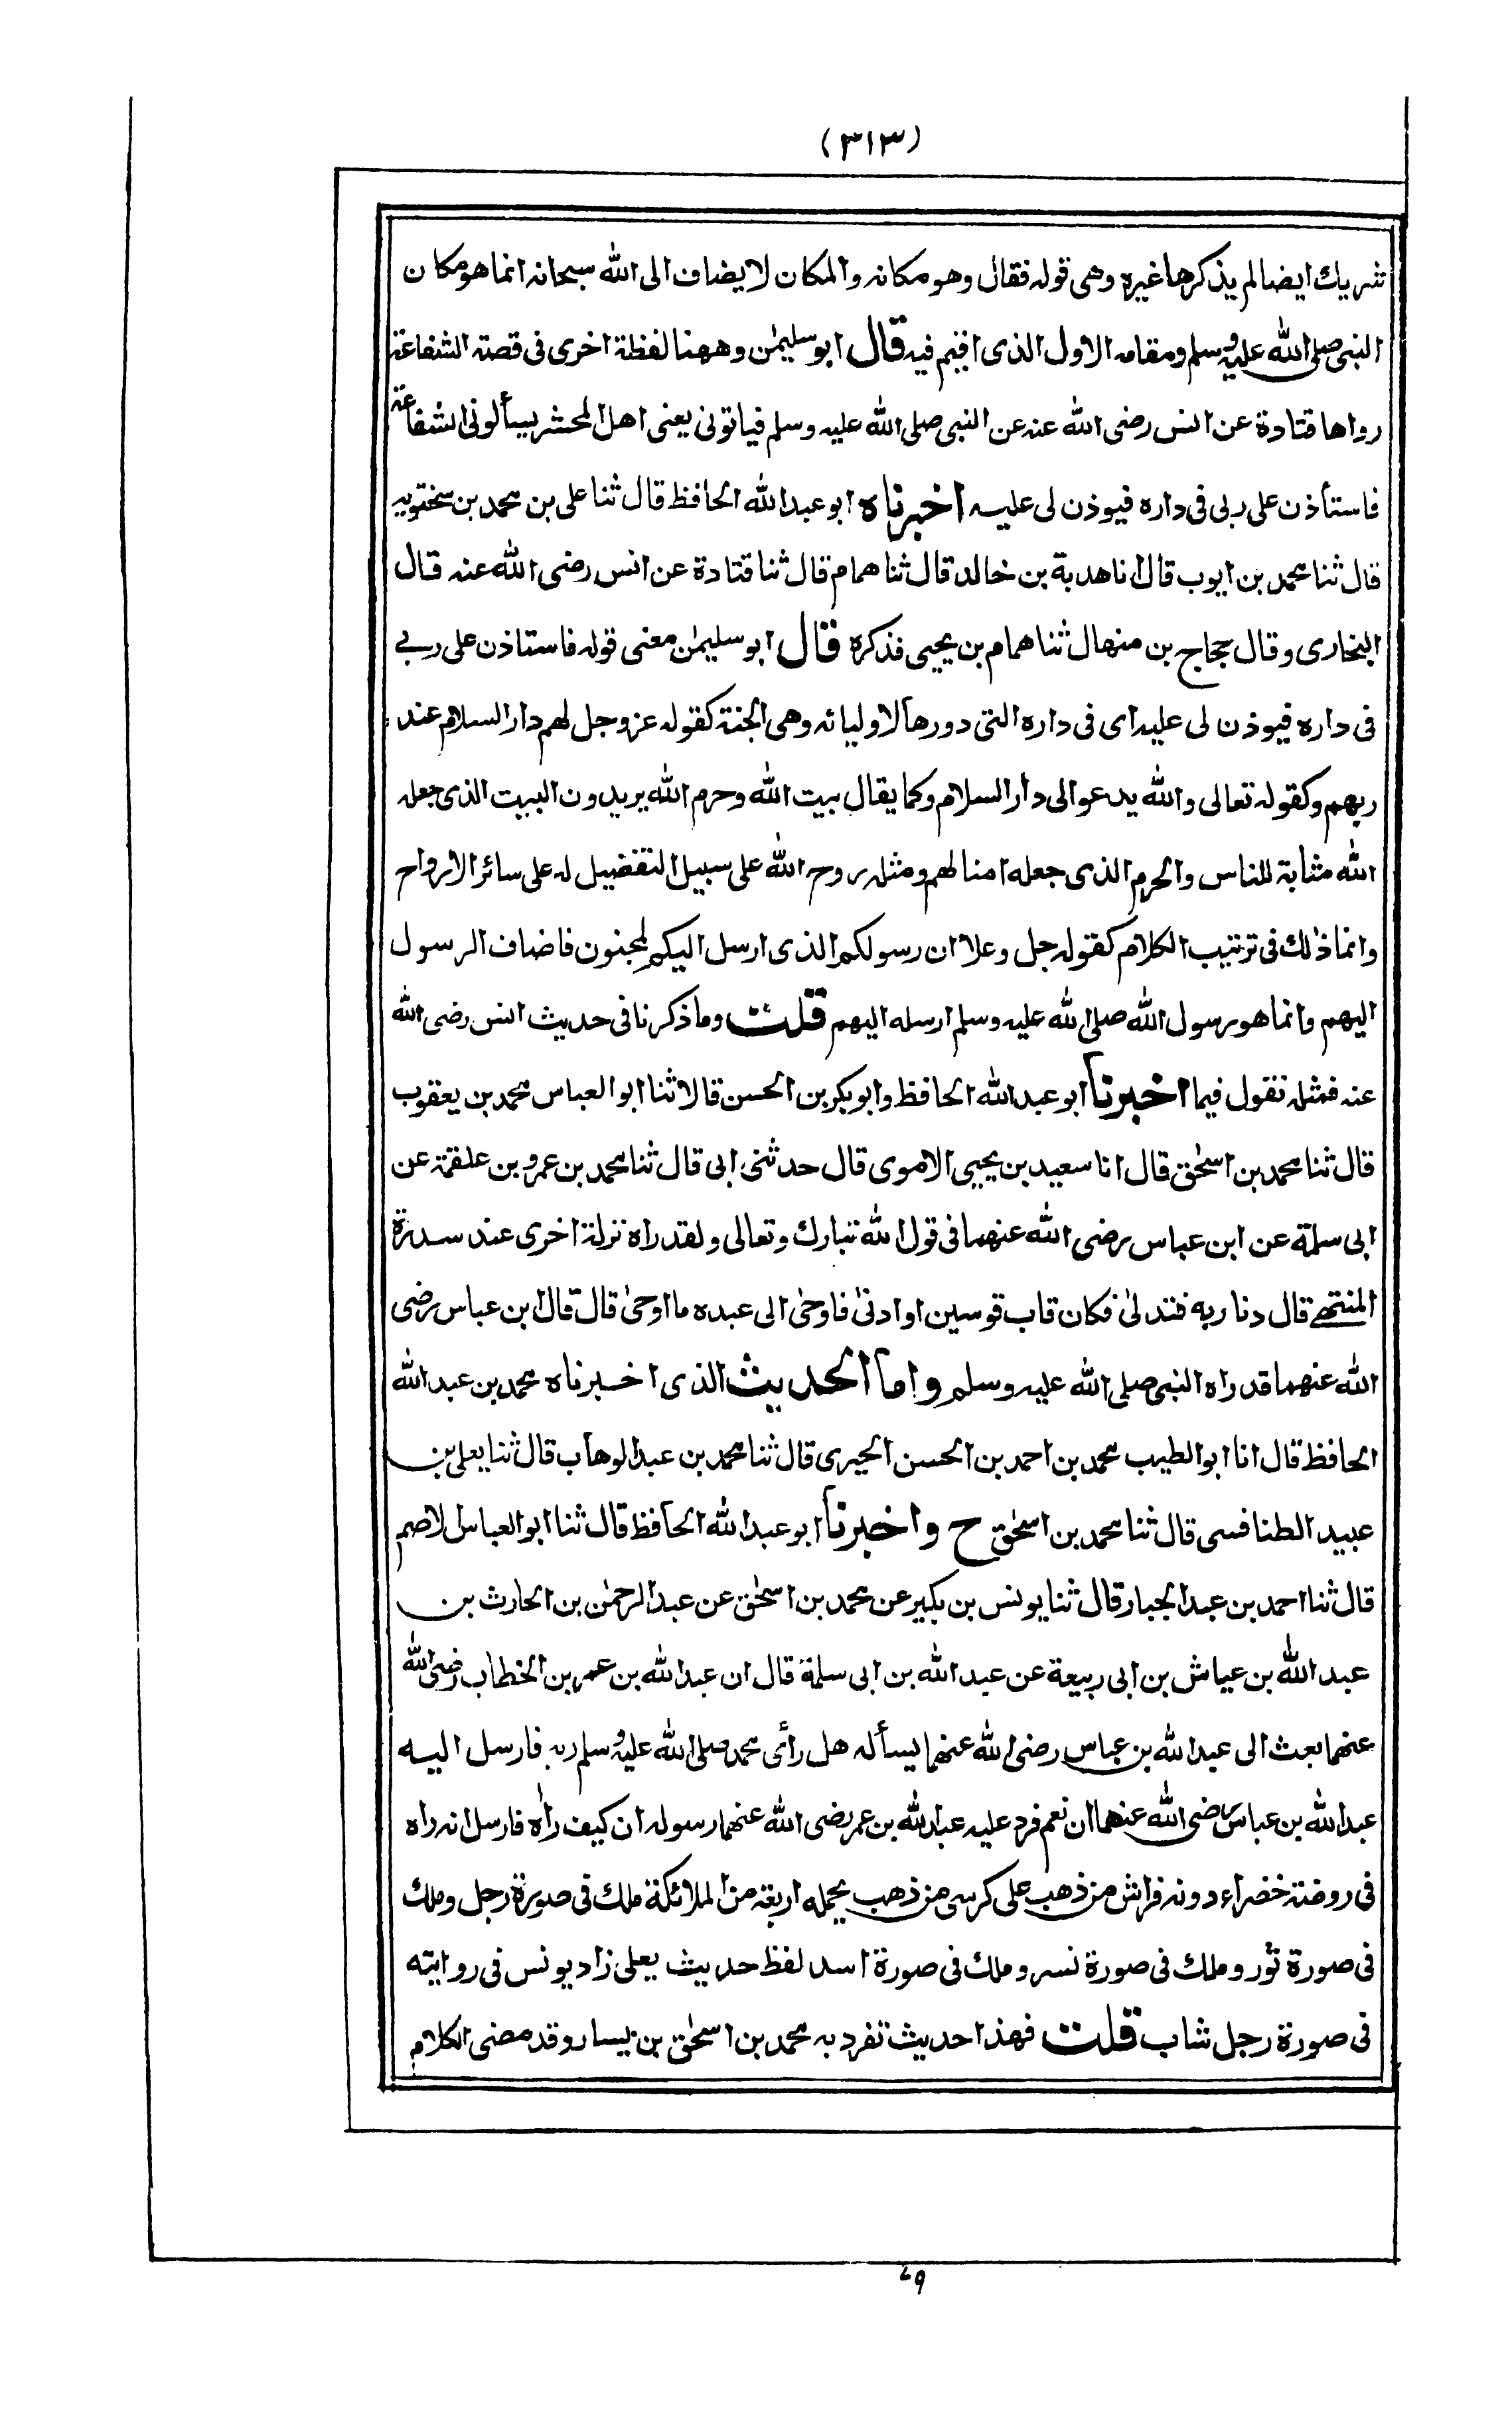 (٣١٣)
شريك ايضا لم يذكرها غيره وهى قوله فقال وهو مكانه والمكان لا يضاف الى الله سبحانه انما هو مكان
النبى صلى الله عليه وسلم ومقامه الاول الذى اقيم فيه قال ابو سليمٰن وههنا لفظة اخرى فى قصته الشفاعة
رواها قتادة عن انس رضى الله عنه عن النبى صلى الله عليه وسلم فياتونى يعنى اهل المحشر يسألونى الشفاعة
فاستأذن على ربى فى داره فيوذن لى عليه اخبرناه ابو عبد الله الحافظ قال ثنا على بن محمد بن سختويه
قال ثنا محمد بن ايوب قال انا هدبة بن خالد قال ثنا همام قال ثنا قتادة عن انس رضى الله عنه قال
البخارى وقال حجاج بن منهال ثنا همام بن يحيى فذكره قال ابو سليمٰن معنى قوله فاستاذن على ربے
فى داره فيوذن لى عليه اى فى داره التى دورها لاوليائه وهى الجنة كقوله عز وجل لهم دار السلام عند
ربهم وكقوله تعالى والله يدعو الى دار السلام وكما يقال بيت الله وحرم الله يريدون البيت الذى جعله
الله مثابة للناس والحرم الذى جعله امنا لهم ومثله روح الله على سبيل التفضيل له على سائر الارواح
وانما ذلك فى ترتيب الكلام كقوله جل وعلا ان رسولكم الذى ارسل اليكم لمجنون فاضاف الرسول
اليهم وانما هو رسول الله صلى الله عليه وسلم ارسله اليهم قلت وما ذكرنا فى حديث انس رضى الله
عنه فمثله نقول فيما اخبرنا ابو عبد الله الحافظ وابو بكر بن الحسن قالا ثنا ابو العباس محمد بن يعقوب
قال ثنا محمد بن اسحٰق قال انا سعيد بن يحيى الاموى قال حدثنى ابى قال ثنا محمد بن عمرو بن علقمة عن
ابى سلمة عن ابن عباس رضى الله عنهما فى قول الله تبارك وتعالى ولقد راه نزلة اخرى عند سدرة
المنتهے قال دنا ربه فتدلىٰ فكان قاب قوسين او ادنىٰ فاوحىٰ الى عبده ما اوحىٰ قال قال ابن عباس رضى
الله عنهما قد راه النبى صلى الله عليه وسلم واما الحديث الذى اخبرناه محمد بن عبد الله
الحافظ قال انا ابو الطيب محمد بن احمد بن الحسن الحيرى قال ثنا محمد بن عبد الوهاب قال ثنا يعلى بن
عبيد الطنافسى قال ثنا محمد بن اسحٰق ح واخبرنا ابو عبد الله الحافظ قال ثنا ابو العباس الاصم
قال ثنا احمد بن عبد الجبار قال ثنا يونس بن بكير عن محمد بن اسحٰق عن عبد الرحمٰن بن الحارث بن
عبد الله بن عياش بن ابى ربيعة عن عبد الله بن ابى سلمة قال ان عبد الله بن عمر بن الخطاب رضى الله
عنهما بعث الى عبد الله بن عباس رضى الله عنهما يسأله هل رأى محمد صلى الله عليه وسلم ربه فارسل اليه
عبد الله بن عباس رضى الله عنهما ان نعم فرد عليه عبد الله بن عمر رضى الله عنهما رسوله ان كيف راٰه فارسل انه راه
فى روضة خضراء دونه فراش من ذهب على كرسى من ذهب يحمله اربعة من الملائكة ملك فى صورة رجل وملك
فى صورة ثور وملك فى صورة نسر وملك فى صورة اسد لفظ حديث يعلى زاد يونس فى روايته
فى صورة رجل شاب قلت فهذا حديث تفرد به محمد بن اسحٰق بن يسار وقد مضى الكلام